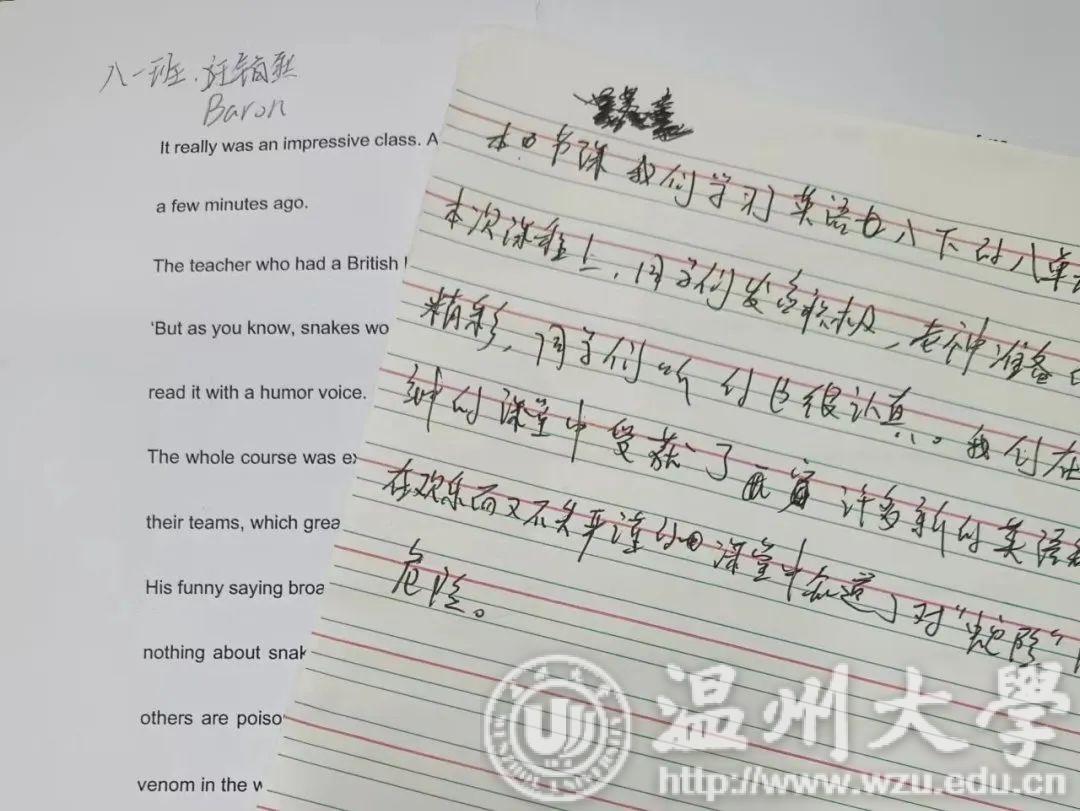 八一班
Baron
It really was an impressive class. A
a few minutes ago.
The teacher who had a British
'But as you know, snakes wo
read it with a humor voice.
The whole course was ex
their teams, which grea
His funny saying broa
nothing about snak
others are poiso
venom in the w
本节课我们学习英语八下的八单
本次课程上，同学们发言积极，老师准备
精彩，同学们听的也很认真。我们在
的课堂中受获了许多新的英语
在欢乐而又不失严谨的课堂中 了对"蛇
危险。
温州大学
http://www.wzu.edu.cn